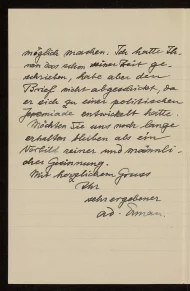 möglich machen. Ich hatte Ih-
nen das schon seiner Zeit ge-
schrieben, hatte aber den
Brief nicht abgeschickt, da
er sich zu einer politischen
Jeremiade entwickelt hatte.
Möchten Sie uns noch lange
erhalten bleiben als ein
Vorbild reiner und männli-
cher Gesinnung.
Mit herzlichem Gruss
Ihr
sehr ergebener
Ad. Erman.